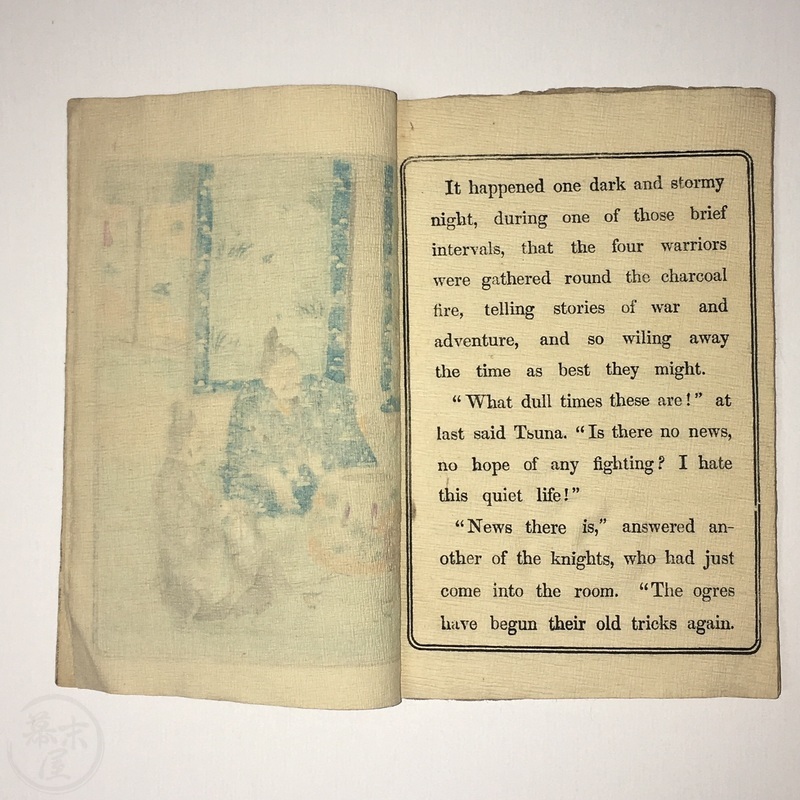 It happened one dark and stormy
night, during one of those brief
intervals, that the four warriors
were gathered round the charcoal
fire, telling stories of war and
adventure, and so wiling away
the time as best they might.
“What dull times these are!” at
last said Tsuna. “Is there no news,
no hope of any fighting? I hate
this quiet life!”
“News there is,” answered an-
other of the knights, who had just
come into the room. “The ogres
have begun their old tricks again.
幕末
屋